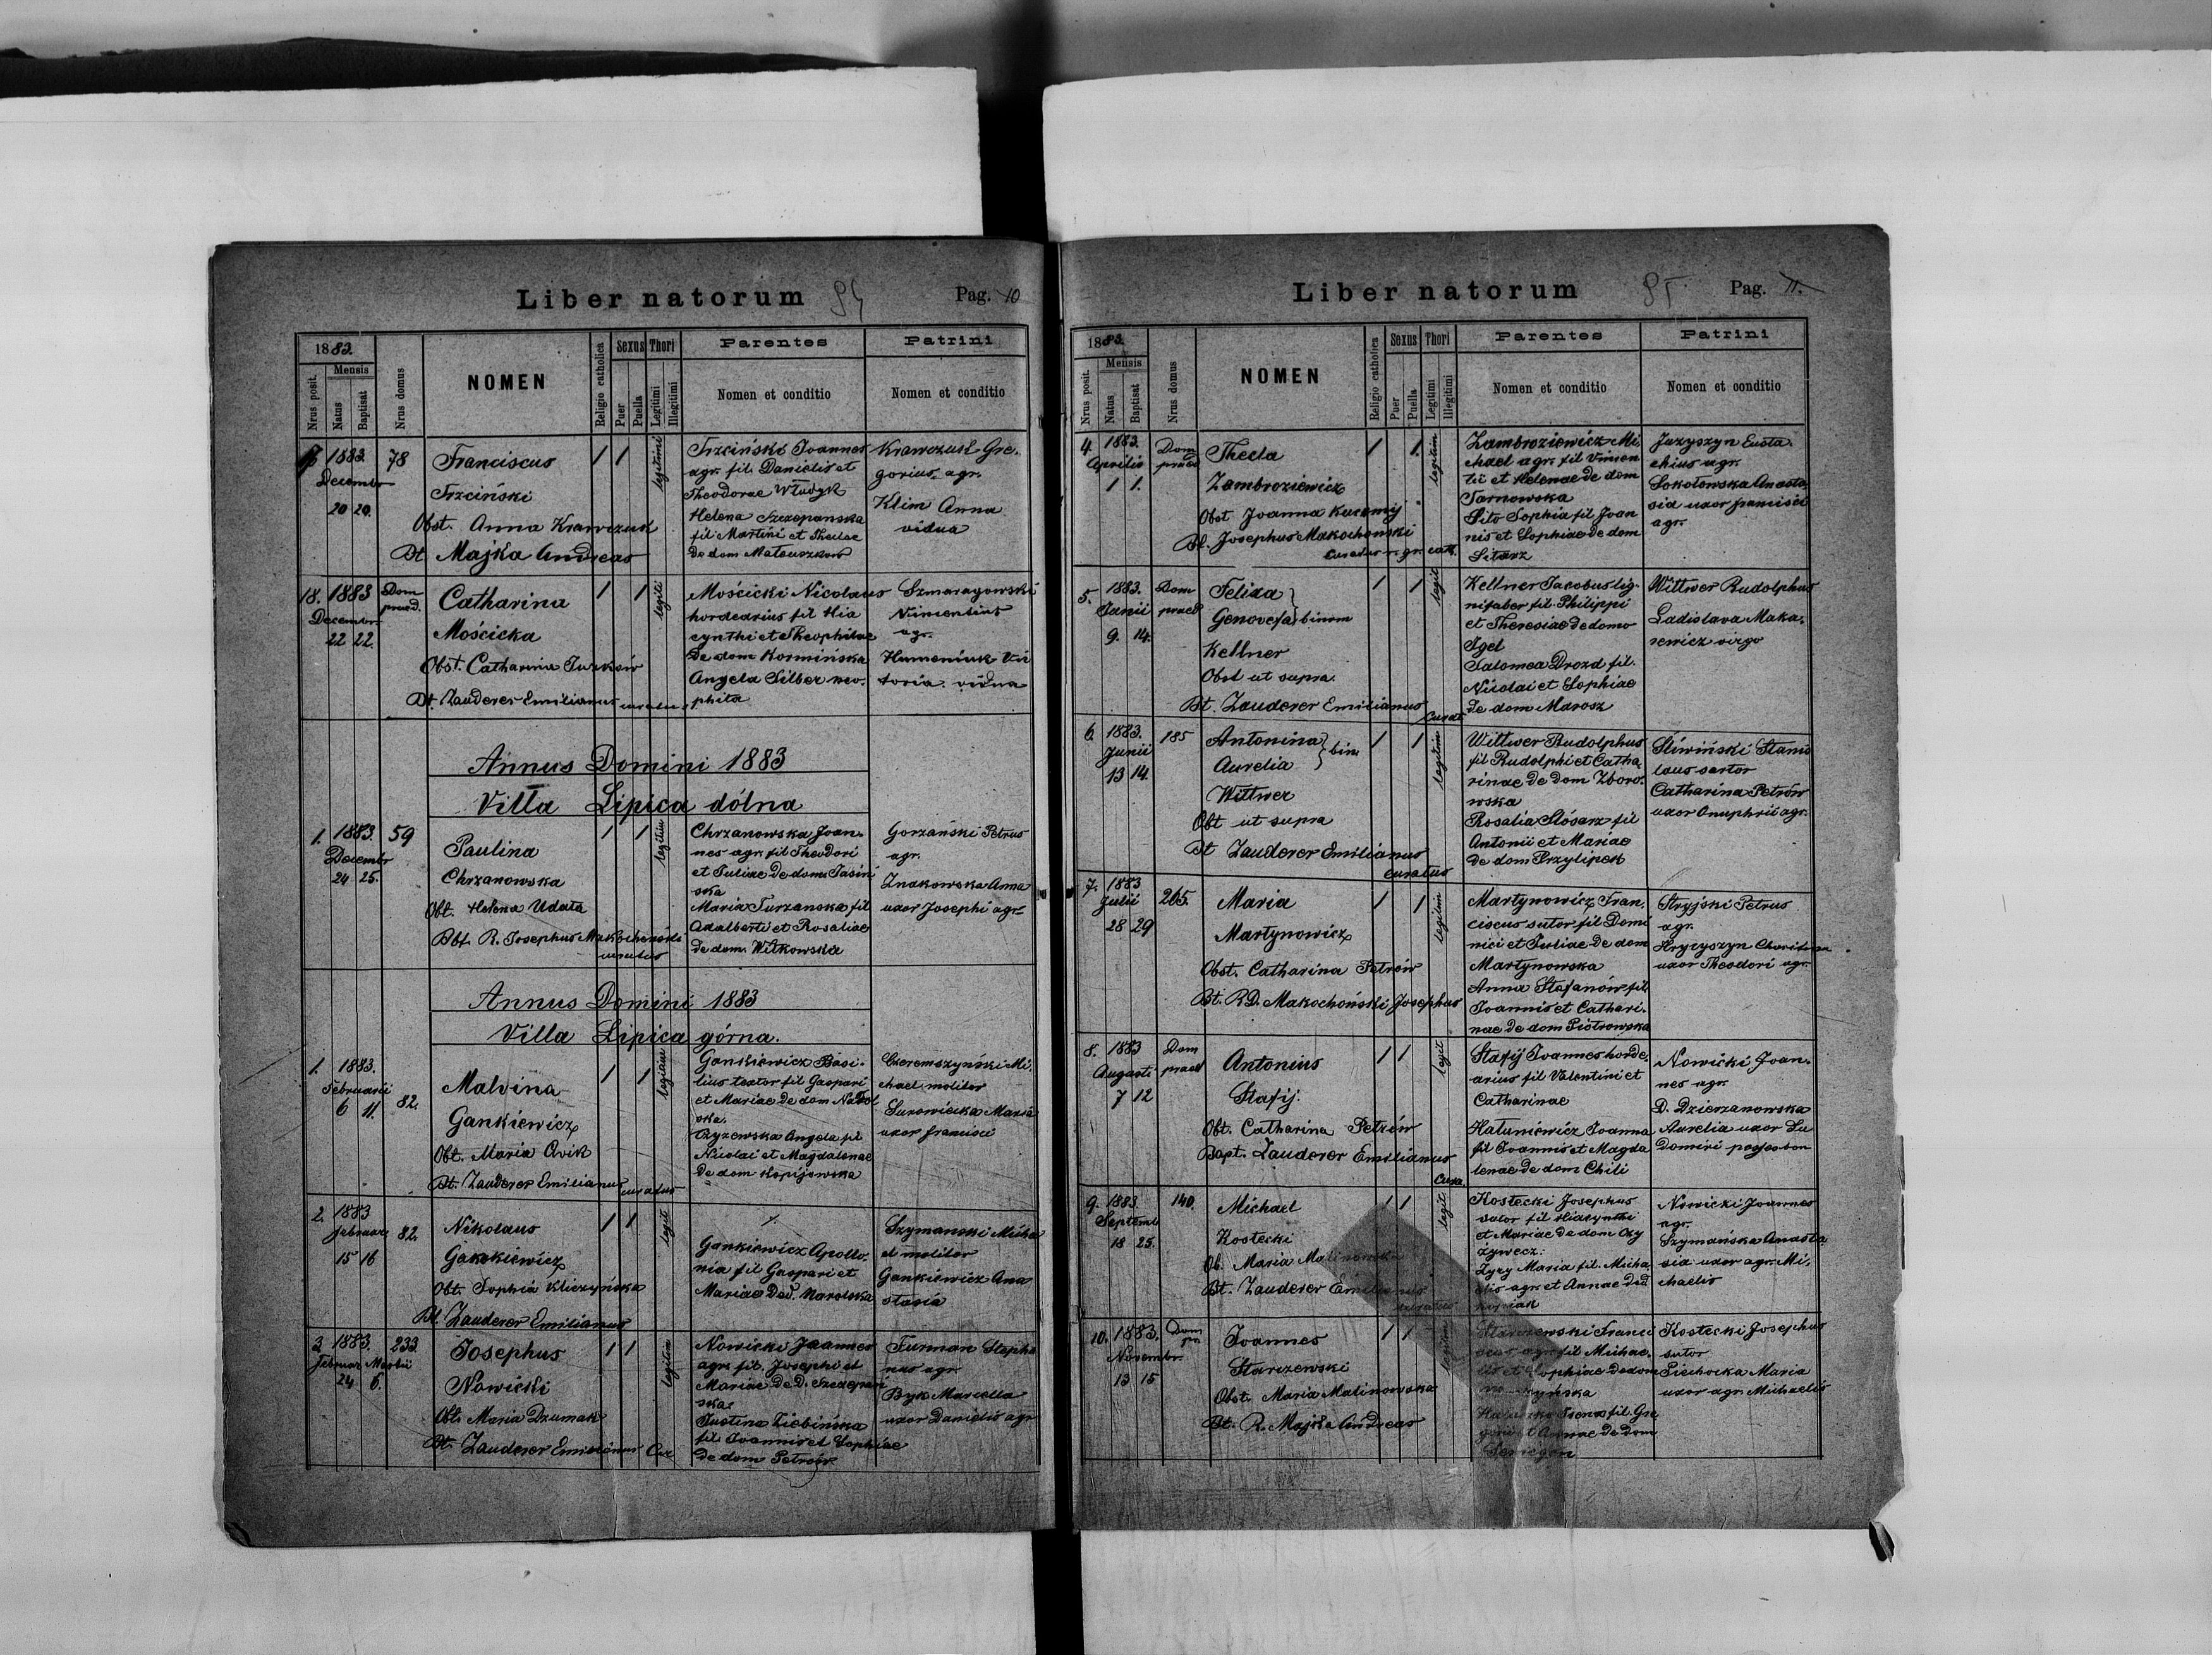 Liber natorum
Pag. 10
1883.
Nrus posit.
Mensis
Natus
Baptisat
Nrus domus
NOMEN
Religio catholica
Sexus
Puer
Puella
Thori
Legitimi
Illegitimi
Parentes
Nomen et conditio
Patrini
Nomen et conditio
1883
Decembr
20 20.
78
Franciscus
Trzciński
Obst. Anna Krawczuk
Bt Majka Andreas
legitimi
Trzciński Joannes
agr. fil. Danielis et
Theodorae Włudyk
Helena Szczepanska
fil Martini et Theclae
de dom Mateuszków
Krawczuk Gre-
gorius, agr.
Klim Anna
vidua
18. 1883
Decembr.
22 22.
Dom
praed.
Catharina
Mościcka
Obst. Catharina Turków
Bt. Zauderer Emilianus curatus
legiti
Mościcki Nicolaus
hordearius fil Hia
cynthi et Theophilae
de dom Kormińska
Angela Silber neo-
phita
Szmaragowski
Vincentius
agr.
Humeniuk Vic
toria vidua
Annus Domini 1883
Villa Lipica dólna
1. 1883.
Decembr
24 25.
59
Paulina
Chrzanowska
Obt. Helena Udata
Bbt. R. Josephus Makochoński
curatus
legitim
Chrzanowska Joan-
nes agr. fil Theodori
et Juliae de dom Jasiń
ska
Maria Turzanska fil
Adalberti et Rosaliae
de dom. Witkowska
Gorzański Petrus
agr.
Znakowska Anna
uxor Josephi agr.
Annus Domini 1883
Villa Lipica górna.
1. 1883.
Februarii
6 11.
82.
Malvina
Gankiewicz
Obt. Maria Cwik
Bt. Zauderer Emilianus curatus
legitim
Gankiewicz Basi-
lius textor fil Gaspari
et Mariae de dom Narol
ska.
Czyzewska Angela fil
Nicolai et Magdalenae
de dom Kopijowska
Czeremszyński Mi-
chael molitor
Surowiecka Maria
uxor Francisci
2. 1883
Februar
15 16
82.
Nikolaus
Gankiewicz
Obt. Sophia Kliczyńska
Bt. Zauderer Emilianus
legit
Gankiewicz Apollo-
nia fil Gaspari et
Mariae Ded. Narolska
Szymanski Micha
el molitor
Gankiewicz Ana
stasia
3. 1883.
Februar Martii
24 6.
233.
Josephus
Nowicki
Obt. Maria Dzumak
Bt. Zauderer Emilianus Cur
legitim
Nowicki Joannes
agr. fil. Josephi et
Mariae de D. Szczepań
ska.
Justina Ziebińska
fil. Joannis et Sophiae
de dom Petrów
Furman Stepha
nus agr.
Byk Marcella
uxor Danielis agr
Liber natorum
Pag. 11.
1883.
Nrus posit.
Mensis
Natus
Baptisat
Nrus domus
NOMEN
Religio catholica
Sexus
Puer
Puella
Thori
Legitimi
Illegitimi
Parentes
Nomen et conditio
Patrini
Nomen et conditio
4. 1883.
Aprilis
1 1.
Dom
praed
Thecla
Zambroziewicz
Obst Joanna Kuremij
Bt. Josephus Makochonski
curatus r. gr. cath.
legitim
Zambroziewicz Mi
chael agr. fil Vincen
tii et Helenae de dom
Tarnowska
Sito Sophia fil Joan
nis et Sophiae de dom
Sitarz
Juzyszyn Eusta-
chius agr.
Sokołowska Anasta
sia uxor francisci
agr.
5. 1883.
Junii
9. 14.
Dom
praed
Felixa
Genovefa binom
Kellner
Obst ut supra.
Bt. Zauderer Emilianus
Curat
legit
Kellner Jacobus lig-
nifaber fil Philippi
et Theresiae de domo
Igel
Salomea Drozd fil.
Nicolai et Sophiae
de dom Marosz
Wittwer Rudolphus
Ladislava Maka-
rewicz virgo
6. 1883.
Junii
13 14
185
Antonina
Aurelia bin
Wittwer
Obt ut supra
Bt Zauderer Emilianus
curatus
legitim
Wittwer Rudolphus
fil Rudolphi et Catha-
rinae de dom Zboro-
wska
Rosalia Slósarz fil
Antonii et Mariae
de dom Przylipek
Sliwiński Stanis
laus sartor
Catharina Petrów
uxor Onuphrii agr.
7. 1883
Julii
28 29
265.
Maria
Martynowicz
Obst. Catharina Petrów
Bt. R.D. Makochoński Josephus
legitim
Martynowicz Fran-
ciscus sutor fil Domi
nici et Juliae de dom
Martynowska
Anna Stefanów fil
Joannis et Cathari-
nae de dom Piotrowska
Stryjski Petrus
agr.
Hryzyszyn
uxor Theodori agr.
8. 1883
Augusti
7 12
Dom
praed
Antonius
Stafij.
Obt. Catharina Petrów
Bapt. Zauderer Emilianus
Cura.
legit
Stafij Joannes horde-
arius fil Valentini et
Catharinae
Hatuniewicz Joanna
fil Joannis et Magda
lenae de dom Chili
Nowicki Joan-
nes agr.
D. Dzierzanowska
Aurelia uxor Lu
domiri
9. 1883.
Septemb
18 25.
140.
Michael
Kostecki
Ob. Maria Malinowska
Bt. Zauderer Emilianus
curatus
legit
Kostecki Josephus
sutor fil Hiacynthi
et Mariae de dom Ozy
żywecz.
Zyzy Maria fil. Micha-
elis agr. et Annae ded
Kopciak
Nowicki Joannes
agr.
Szymańska Anasta
sia uxor agr. Mi-
chaelis
10. 1883.
Novembr.
13 15
Dom
pr.
Joannes
Starczewski
Obst. Maria Malinowska
Bt. R. Majka Andreas
legitim
Starczewski Franci
scus agr. fil Michae-
lis et Sophiae de dom
fil. Gre
gorii et Annae de dom
Kostecki Josephus
sutor
Piechocka Maria
uxor agr. Michaelis